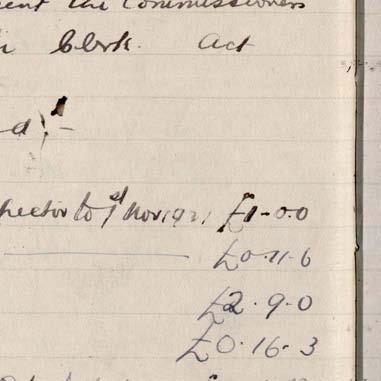 the Commissioners
Clerk. Act
to 1st Nov 1921 £1-0-0
£0-11-6
£2-9-0
£0-16-3